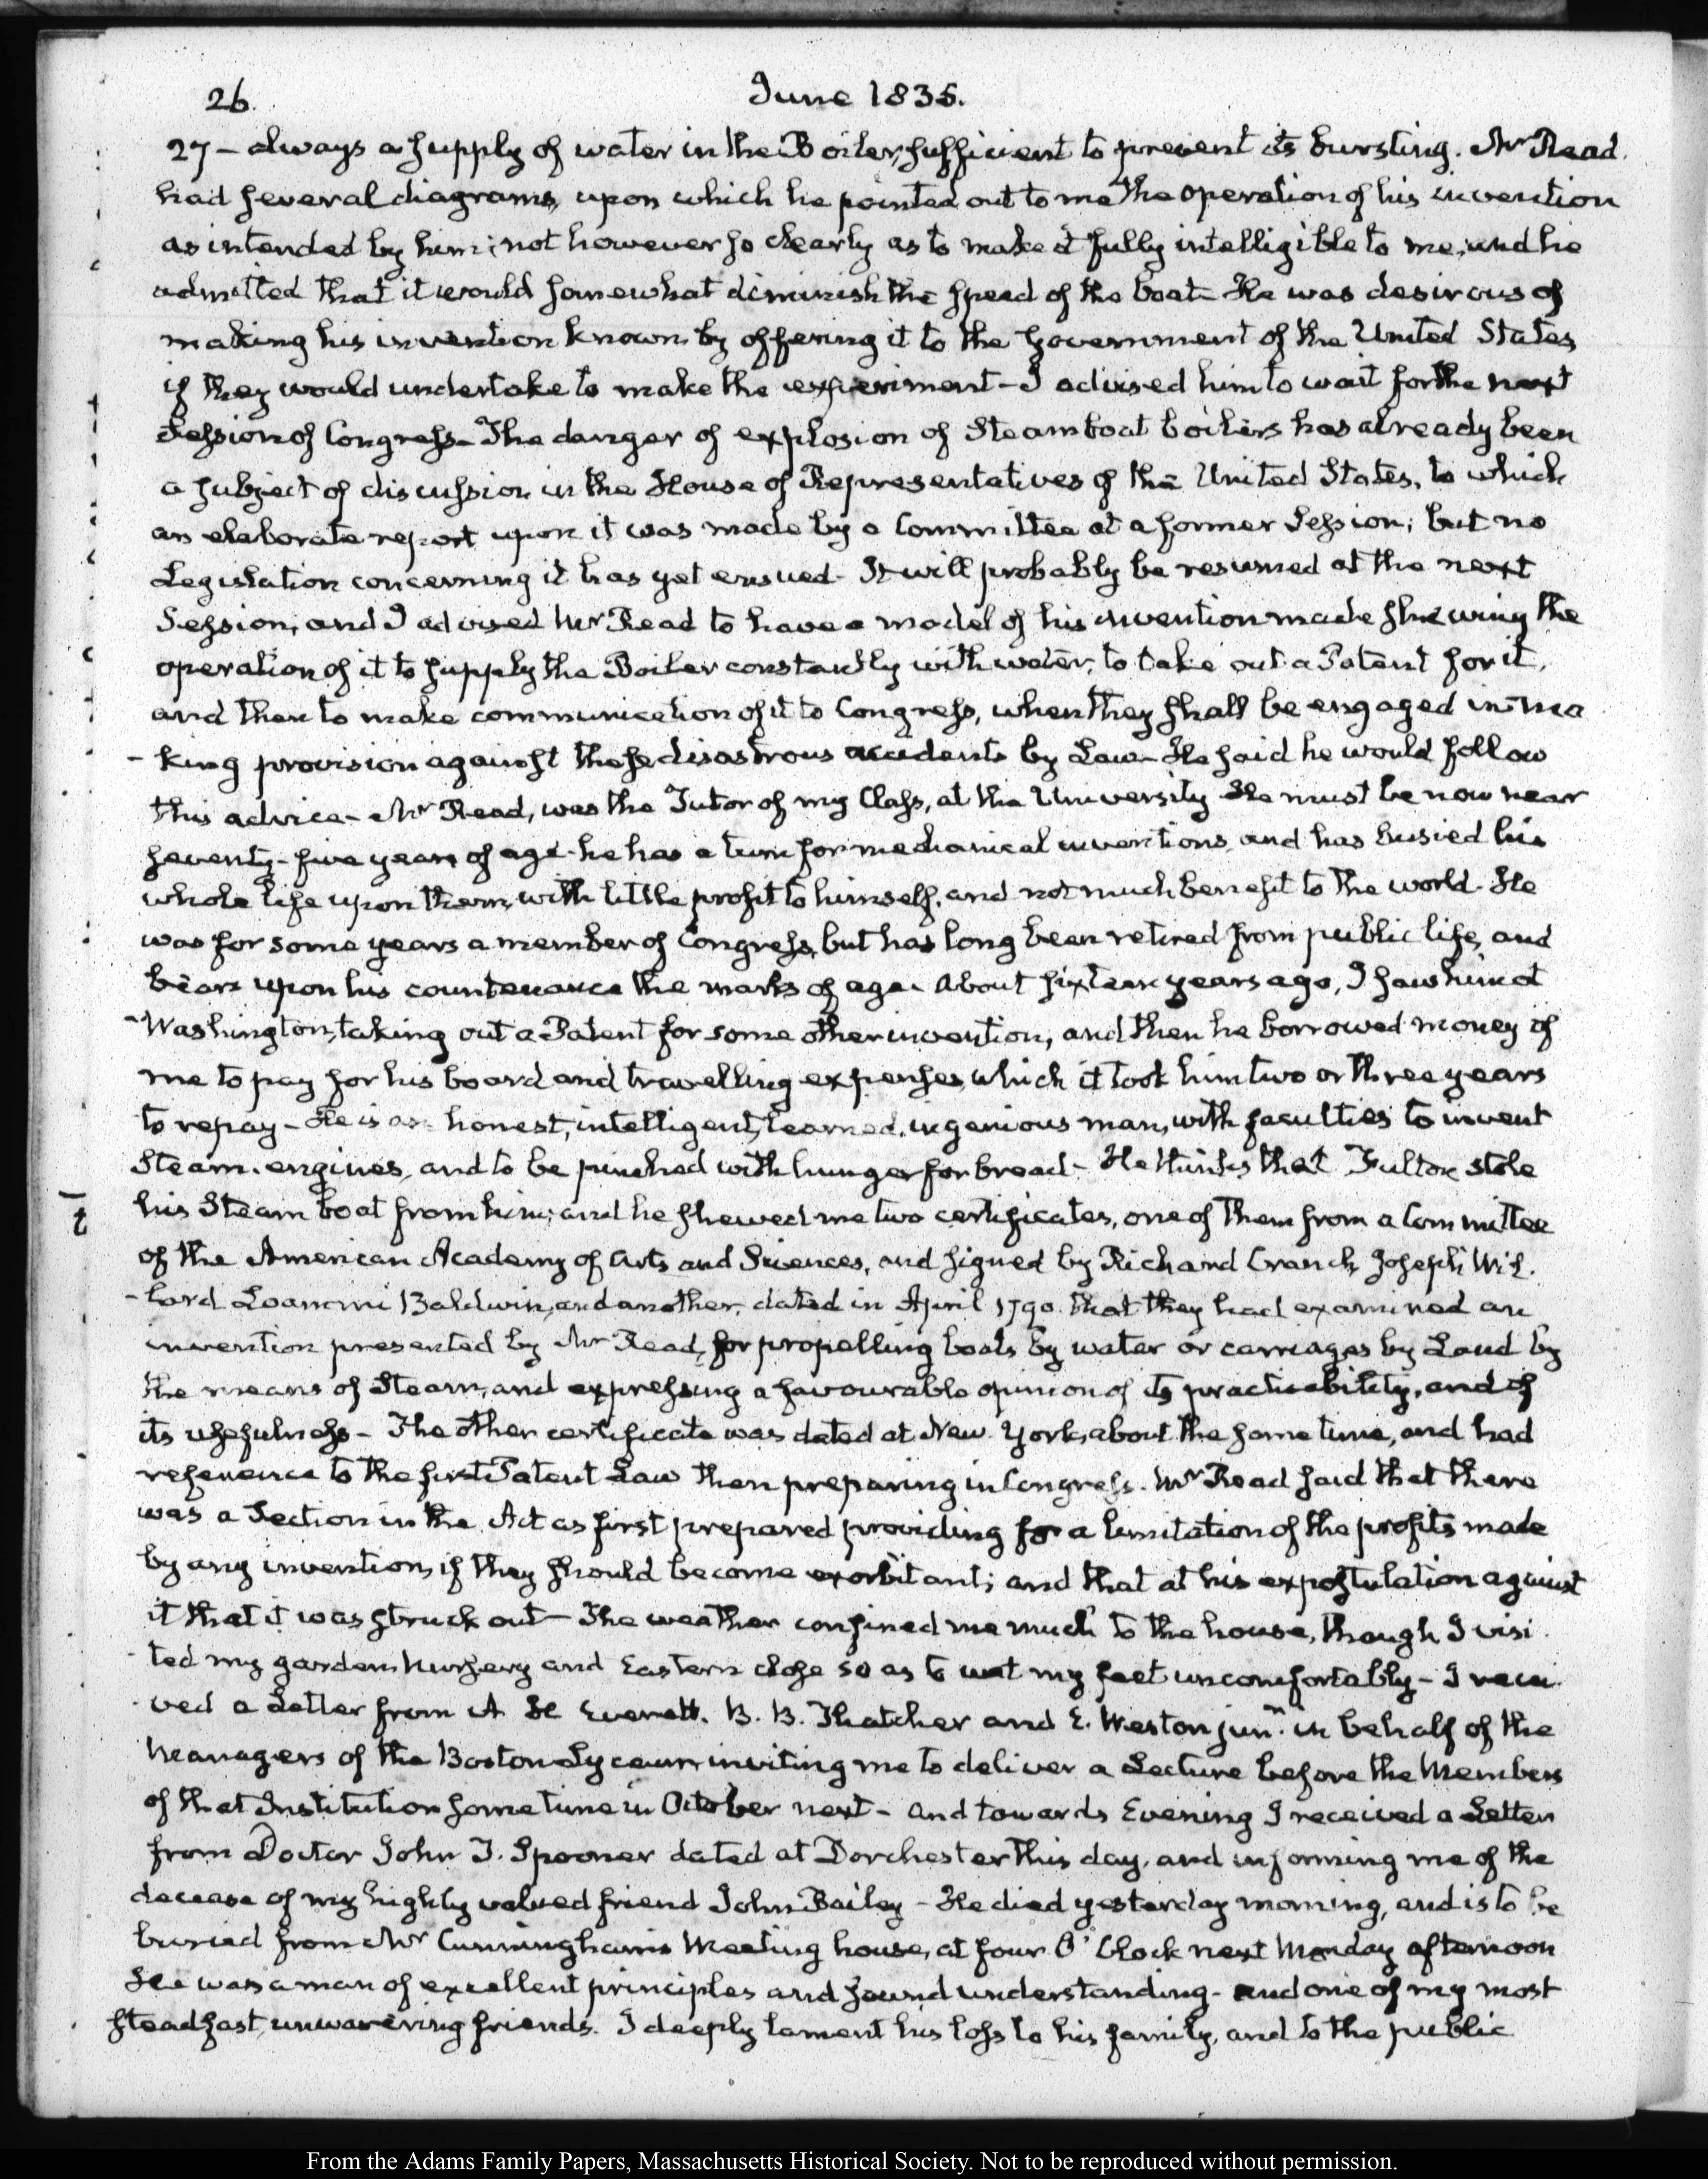 26.
June 1835.
27 — always a supply of water in the Boiler, sufficient to prevent its bursting. Mr Read
had several diagrams, upon which he pointed out to me the operation of his invention
as intended by him; not however so clearly as to make it fully intelligible to me, and he
admitted that it would somewhat diminish the speed of the boat— He was desirous of
making his invention known by offering it to the Government of the United States
if they would undertake to make the experiment— I advised him to wait for the next
Session of Congress— The danger of explosion of Steamboat boilers has already been
a subject of discussion in the House of Representatives of the United States, to which
an elaborate report upon it was made by a Committee at a former Session; but no
Legislation concerning it has yet ensued— It will probably be resumed at the next
Session, and I advised Mr Read to have a model of his invention made shewing the
operation of it to supply the Boiler constantly with water, to take out a Patent for it,
and then to make communication of it to Congress, when they shall be engaged in ma
-king provision against these disastrous accidents by Law— He said he would follow
this advice— Mr Read, was the Tutor of my Class, at the University He must be now near
seventy-five years of age— he has a turn for mechanical inventions, and has busied his
whole life upon them, with little profit to himself, and not much benefit to the world— He
was for some years a member of Congress, but has long been retired from public life, and
bears upon his countenance the marks of age. About sixteen years ago, I saw him at
Washington, taking out a Patent for some other invention, and then he borrowed money of
me to pay for his board and travelling expenses, which it took him two or three years
to repay— He is an honest, intelligent, learned, ingenious man, with faculties to invent
Steam-engines, and to be pinched with hunger for bread— He thinks that Fulton stole
his Steam boat from him; and he shewed me two certificates, one of them from a Committee
of the American Academy of Arts and Sciences, and signed by Richard Cranch, Joseph Wil-
-lard Loammi Baldwin, and another, dated in April 1790. that they had examined an
invention presented by Mr Read, for propelling boats by water or carriages by Land by
the means of Steam, and expressing a favourable opinion of its practicability, and of
its usefulness— The other certificate was dated at New York, about the same time, and had
reference to the first Patent Law then preparing in Congress. Mr Read said that there
was a Section in the Act as first prepared providing for a limitation of the profits made
by any invention, if they should become exorbitant; and that at his expostulation against
it that it was struck out— The weather confined me much to the house, though I visi
-ted my garden, Nursery and Eastern close so as to wet my feet uncomfortably— I recei
-ved a Letter from A H Everett. B. B. Thatcher and E. Weston junr. in behalf of the
Managers of the Boston Lyceum inviting me to deliver a Lecture before the Members
of that Institution some time in October next— and towards Evening I received a Letter
from Doctor John J. Spooner dated at Dorchester this day, and informing me of the
decease of my highly valued friend John Bailey— He died yesterday morning, and is to be
buried from Mr Cunningham's Meeting house, at four O'Clock next Monday afternoon
He was a man of excellent principles and sound understanding— and one of my most
steadfast, unwavering friends. I deeply lament his loss to his family, and to the public
From the Adams Family Papers, Massachusetts Historical Society. Not to be reproduced without permission.